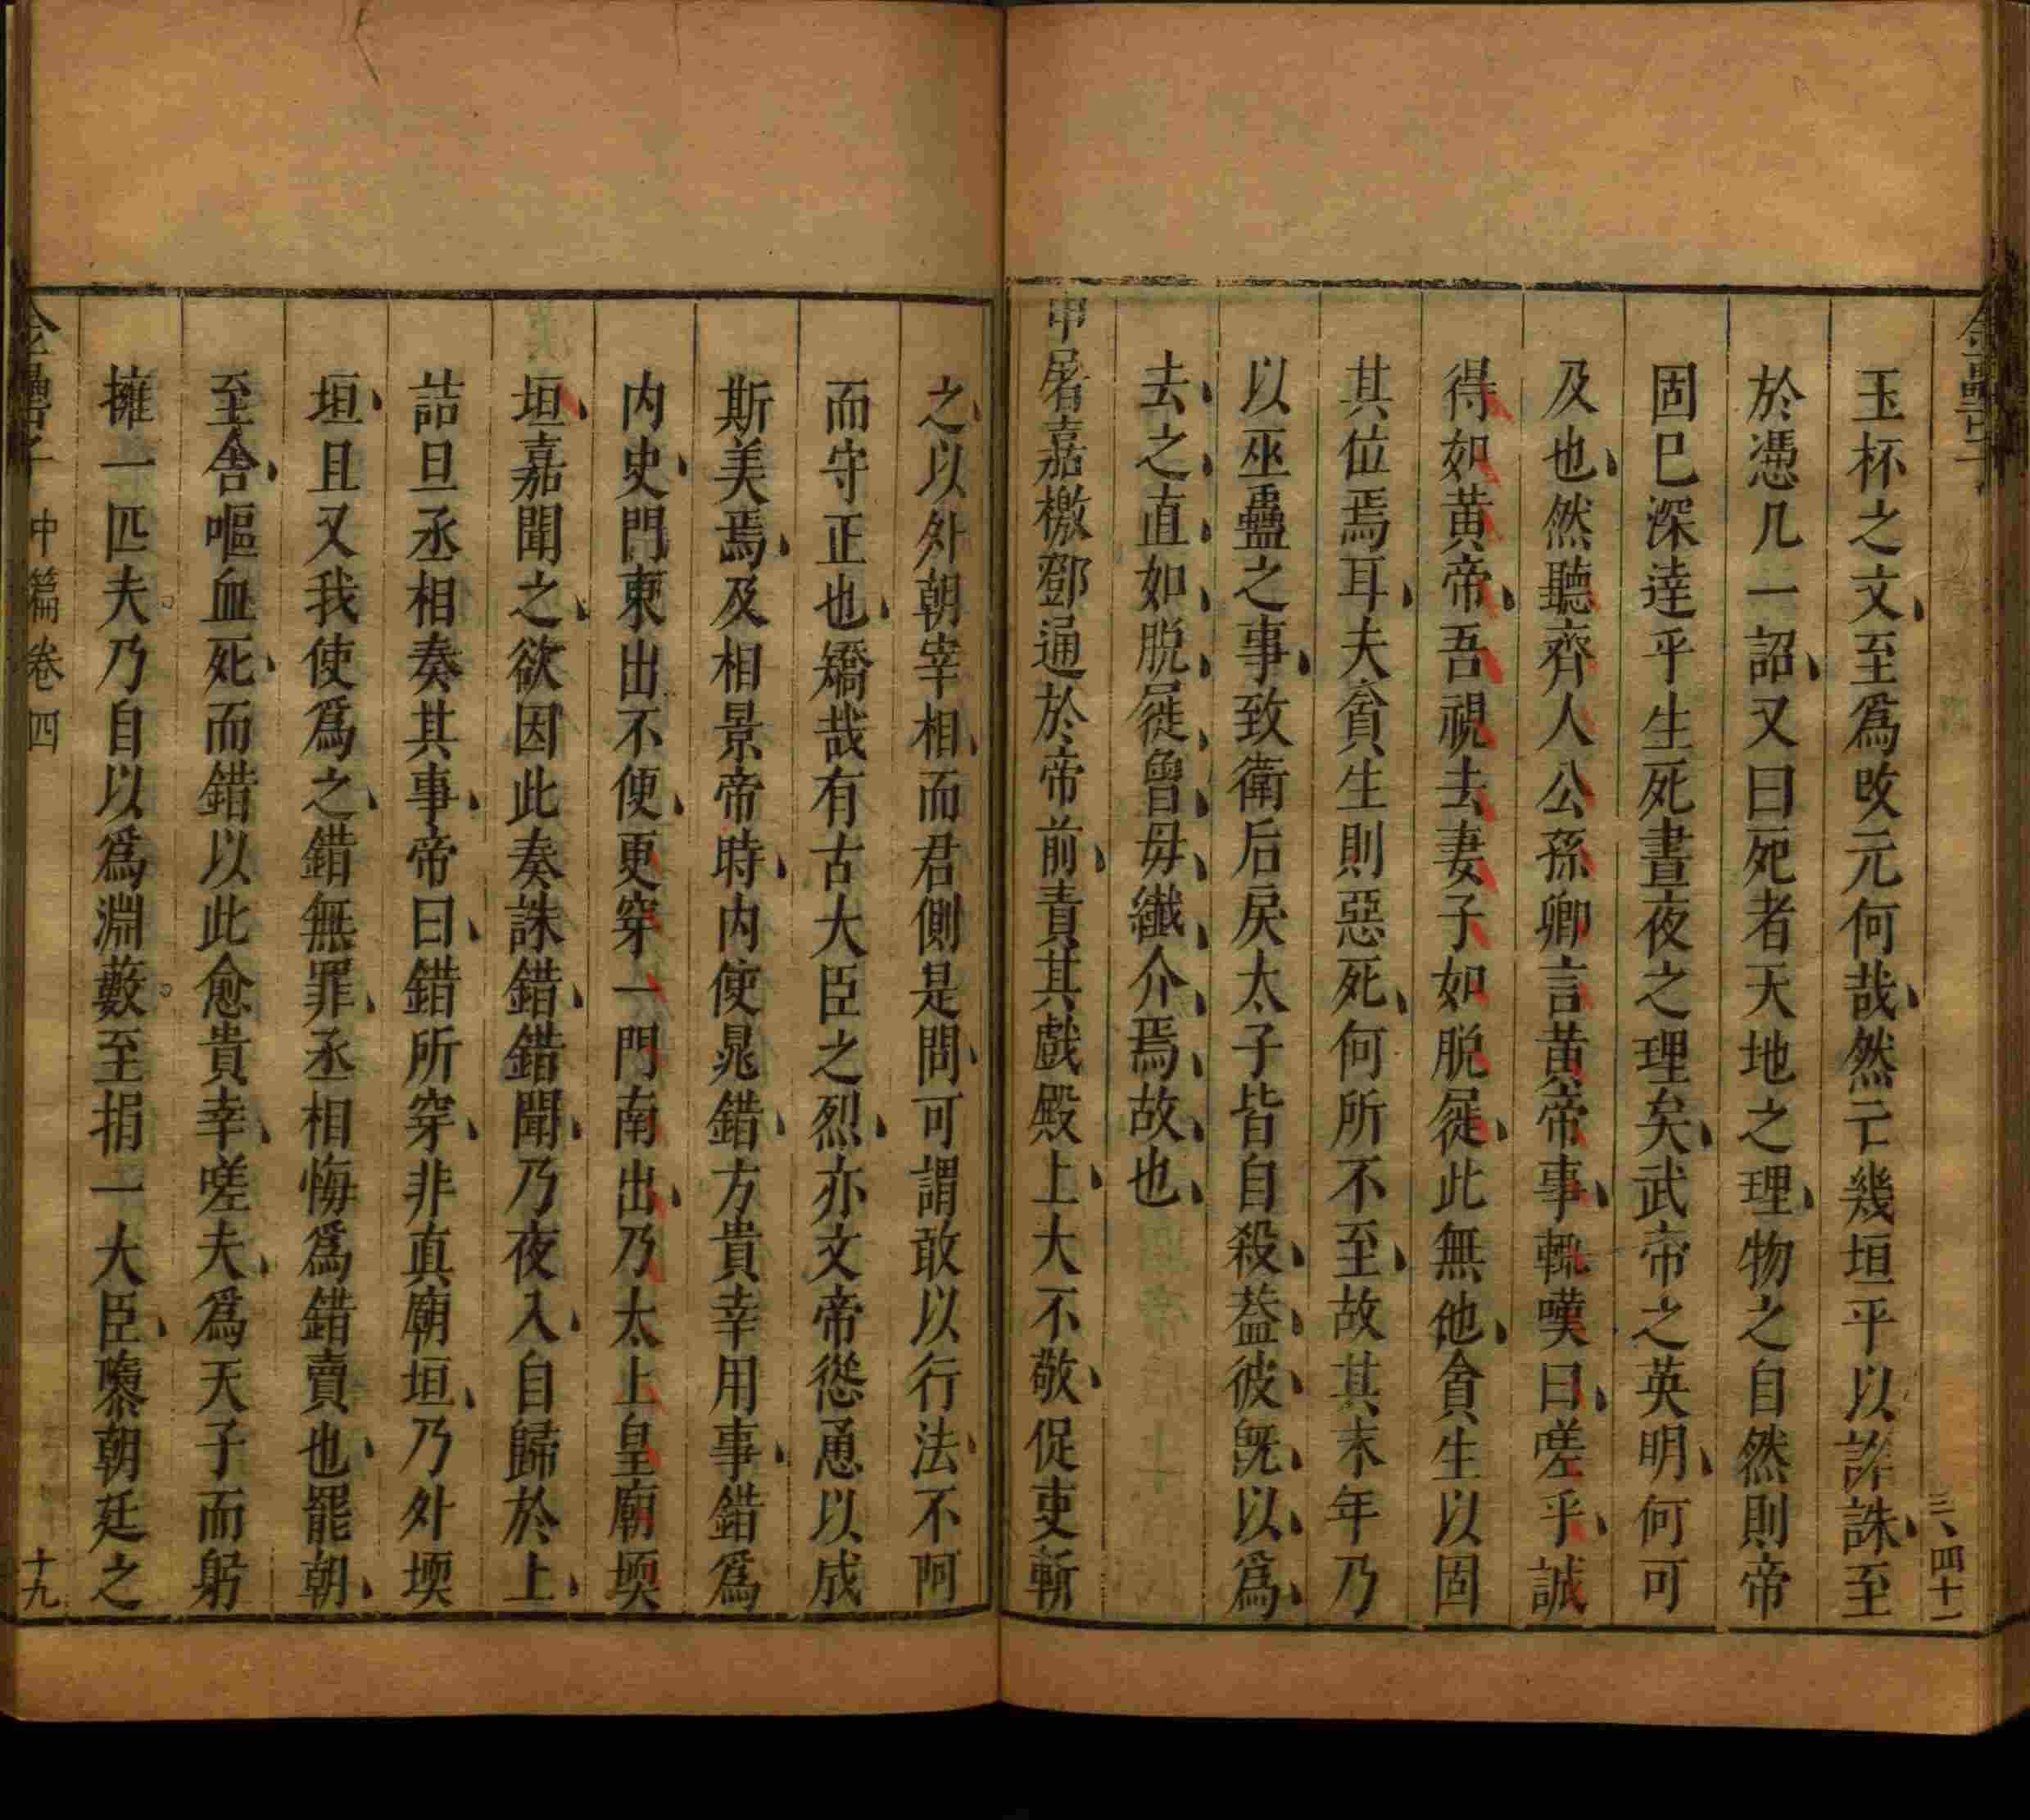 玉杯之文至爲改元何哉然亡幾垣平以詐誅至
於憑几一詔又曰死者天地之理物之自然則帝
固已深達乎生死晝夜之理矣武帝之英明何可
及也然聽齊人公孫卿言黃帝事輒嘆曰嗟乎誠
得如黃帝吾視去妻子如脫屣此無他貪生以固
其位焉耳夫貪生則惡死何所不至故其末年乃
以巫蠱之事致衛后戾太子皆自殺葢彼旣以爲
去之直如脫屣曾毋纖介焉故也
申屠嘉檄鄧通於帝前責其戲殿上大不敬促吏斬
之以外朝宰相而君側是問可謂敢以行法不阿
而守正也矯哉有古大臣之烈亦文帝慫恿以成
斯美焉及相景帝時內使晁錯方貴幸用事錯爲
內史門東出不便更穿一門南出乃太上皇廟堧
垣嘉聞之欲因此奏誅錯錯聞乃夜入自歸於上
詰旦丞相奏其事帝曰錯所穿非真廟垣乃外堧
垣且又我使爲之錯無罪丞相悔爲錯賣也罷朝
至舍嘔血死而錯以此愈貴幸嗟夫爲天子而躬
擁一匹夫乃自以爲淵藪至捐一大臣隳朝廷之
金罍子 中篇卷四 十九